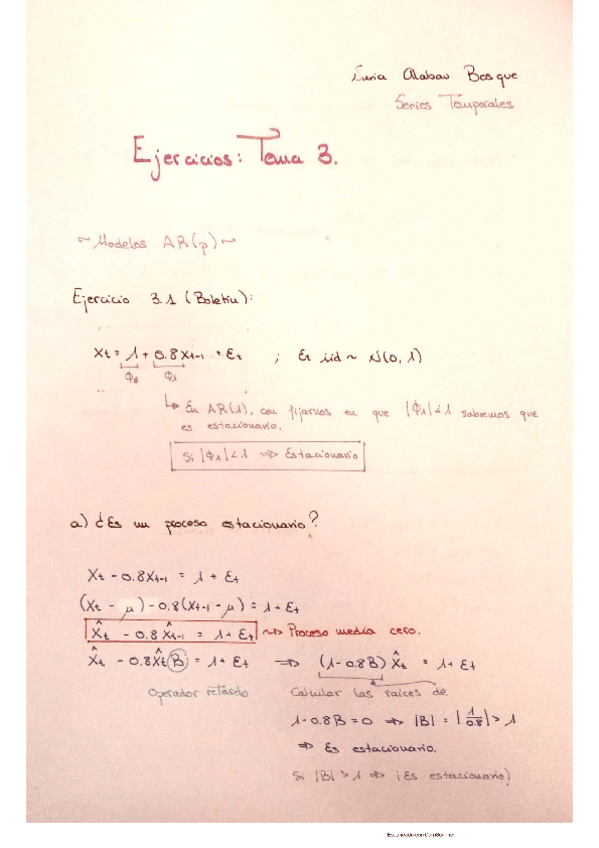 Alabau Bosque
Series Temporales
Ejercicios: Tema 3.
~ Modelos AR(p) ~
Ejercicio 3.1 (Boletín):
Xt = 1 + 0.8 Xt-1 + Et ; Et iid ~ N(0, 1)
ϕ0 ϕ1
↳ En AR(1), con fijarnos en que |ϕ1| < 1 sabremos que
es estacionario.
Si |ϕ1| < 1 => Estacionario
a) ¿Es un proceso estacionario?
Xt - 0.8Xt-1 = 1 + Et
(Xt - μ) - 0.8(Xt-1 - μ) = 1 + Et
X̂t - 0.8 X̂t-1 = 1 + Et ~> Proceso media cero.
X̂t - 0.8X̂t B = 1 + Et => (1 - 0.8B) X̂t = 1 + Et
Operador retardo Calcular las raíces de
1 - 0.8B = 0 => |B| = |1/0.8| > 1
=> Es estacionario.
Si |B| > 1 => ¡Es estacionario!
Escaneado con CamScanner